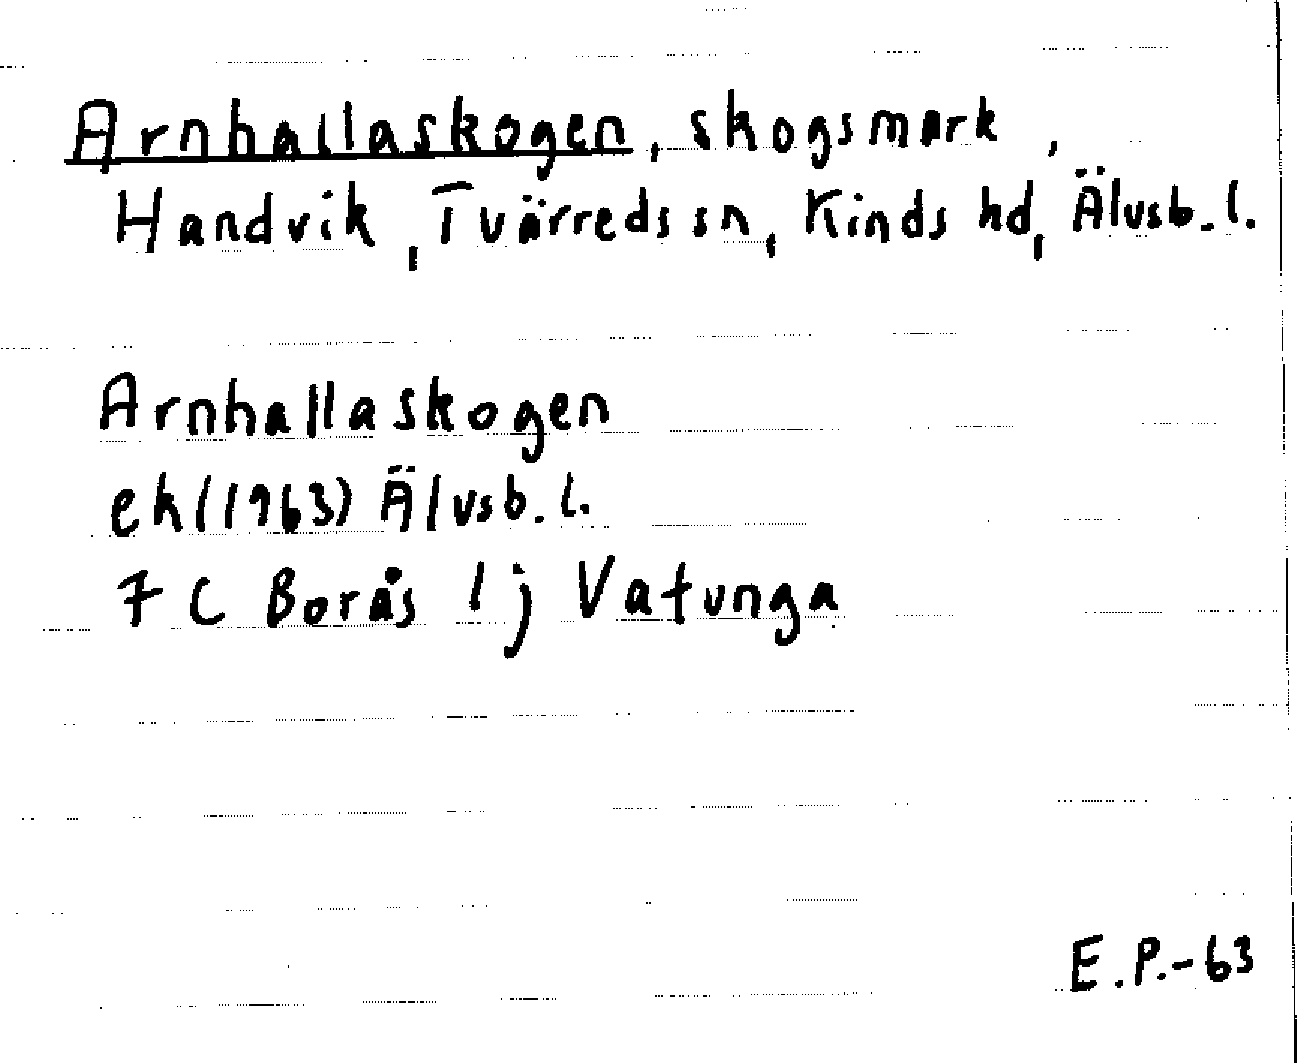 Arnhallaskogen, skogsmark,
Handvik, Tvärreds sn, Kinds hd, Älvsb. l.
Arnhallaskogen
ek (1963) Älvsb. l.
7 C Borås 1 j Vatunga
E.P.-63